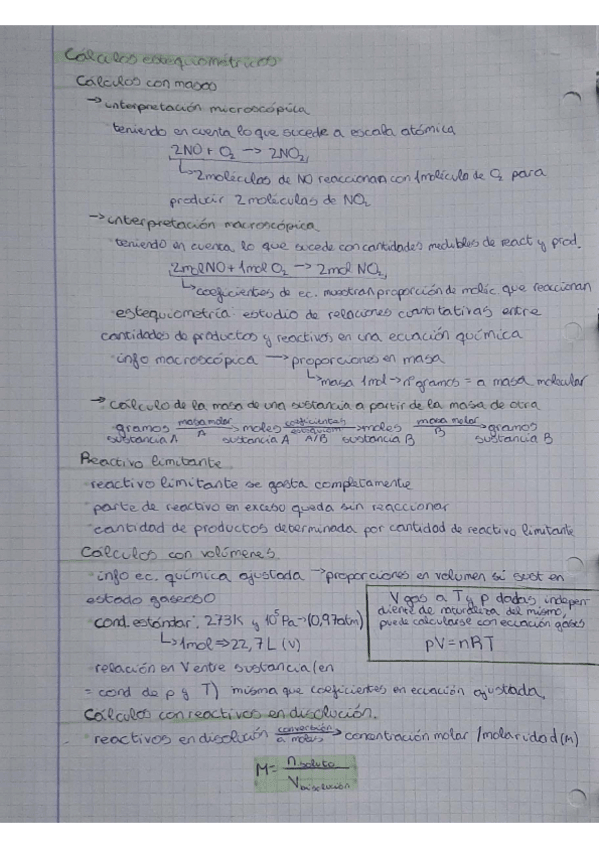 Cálculos estequiométricos
Cálculos con masas
→ interpretación microscópica
teniendo en cuenta lo que sucede a escala atómica
2NO + O₂ → 2NO₂
↳ 2 moléculas de NO reaccionan con 1 molécula de O₂ para
producir 2 moléculas de NO₂
→ interpretación macroscópica
teniendo en cuenta lo que sucede con cantidades medibles de react y prod.
2mol NO + 1mol O₂ → 2mol NO₂
↳ coeficientes de ec. muestran proporción de moléc. que reaccionan
estequiometría: estudio de relaciones cuantitativas entre
cantidades de productos y reactivos en una ecuación química
info macroscópica → proporciones en masa
↳ masa 1mol → nº gramos = a masa molecular
→ cálculo de la masa de una sustancia a partir de la masa de otra
gramos sustancia A —masa molar A→ moles sustancia A —coeficientes estequiom A/B→ moles sustancia B —masa molar B→ gramos sustancia B
Reactivo limitante
reactivo limitante se gasta completamente
parte de reactivo en exceso queda sin reaccionar
cantidad de productos determinada por cantidad de reactivo limitante
Cálculos con volúmenes
info ec. química ajustada → proporciones en volumen si sust en
estado gaseoso
cond. estándar: 273K y 10⁵Pa → (0,97atm)
↳ 1mol ⇒ 22,7L (V)
V gas a T y p dadas indepen
diente de naturaleza del mismo,
puede calcularse con ecuación gases
pV = nRT
relación en V entre sustancia (en
= cond de p y T) misma que coeficientes en ecuación ajustada.
Cálculos con reactivos en disolución.
reactivos en disolución —conversión a moles→ concentración molar / molaridad (M)
M = n soluto / V disolución